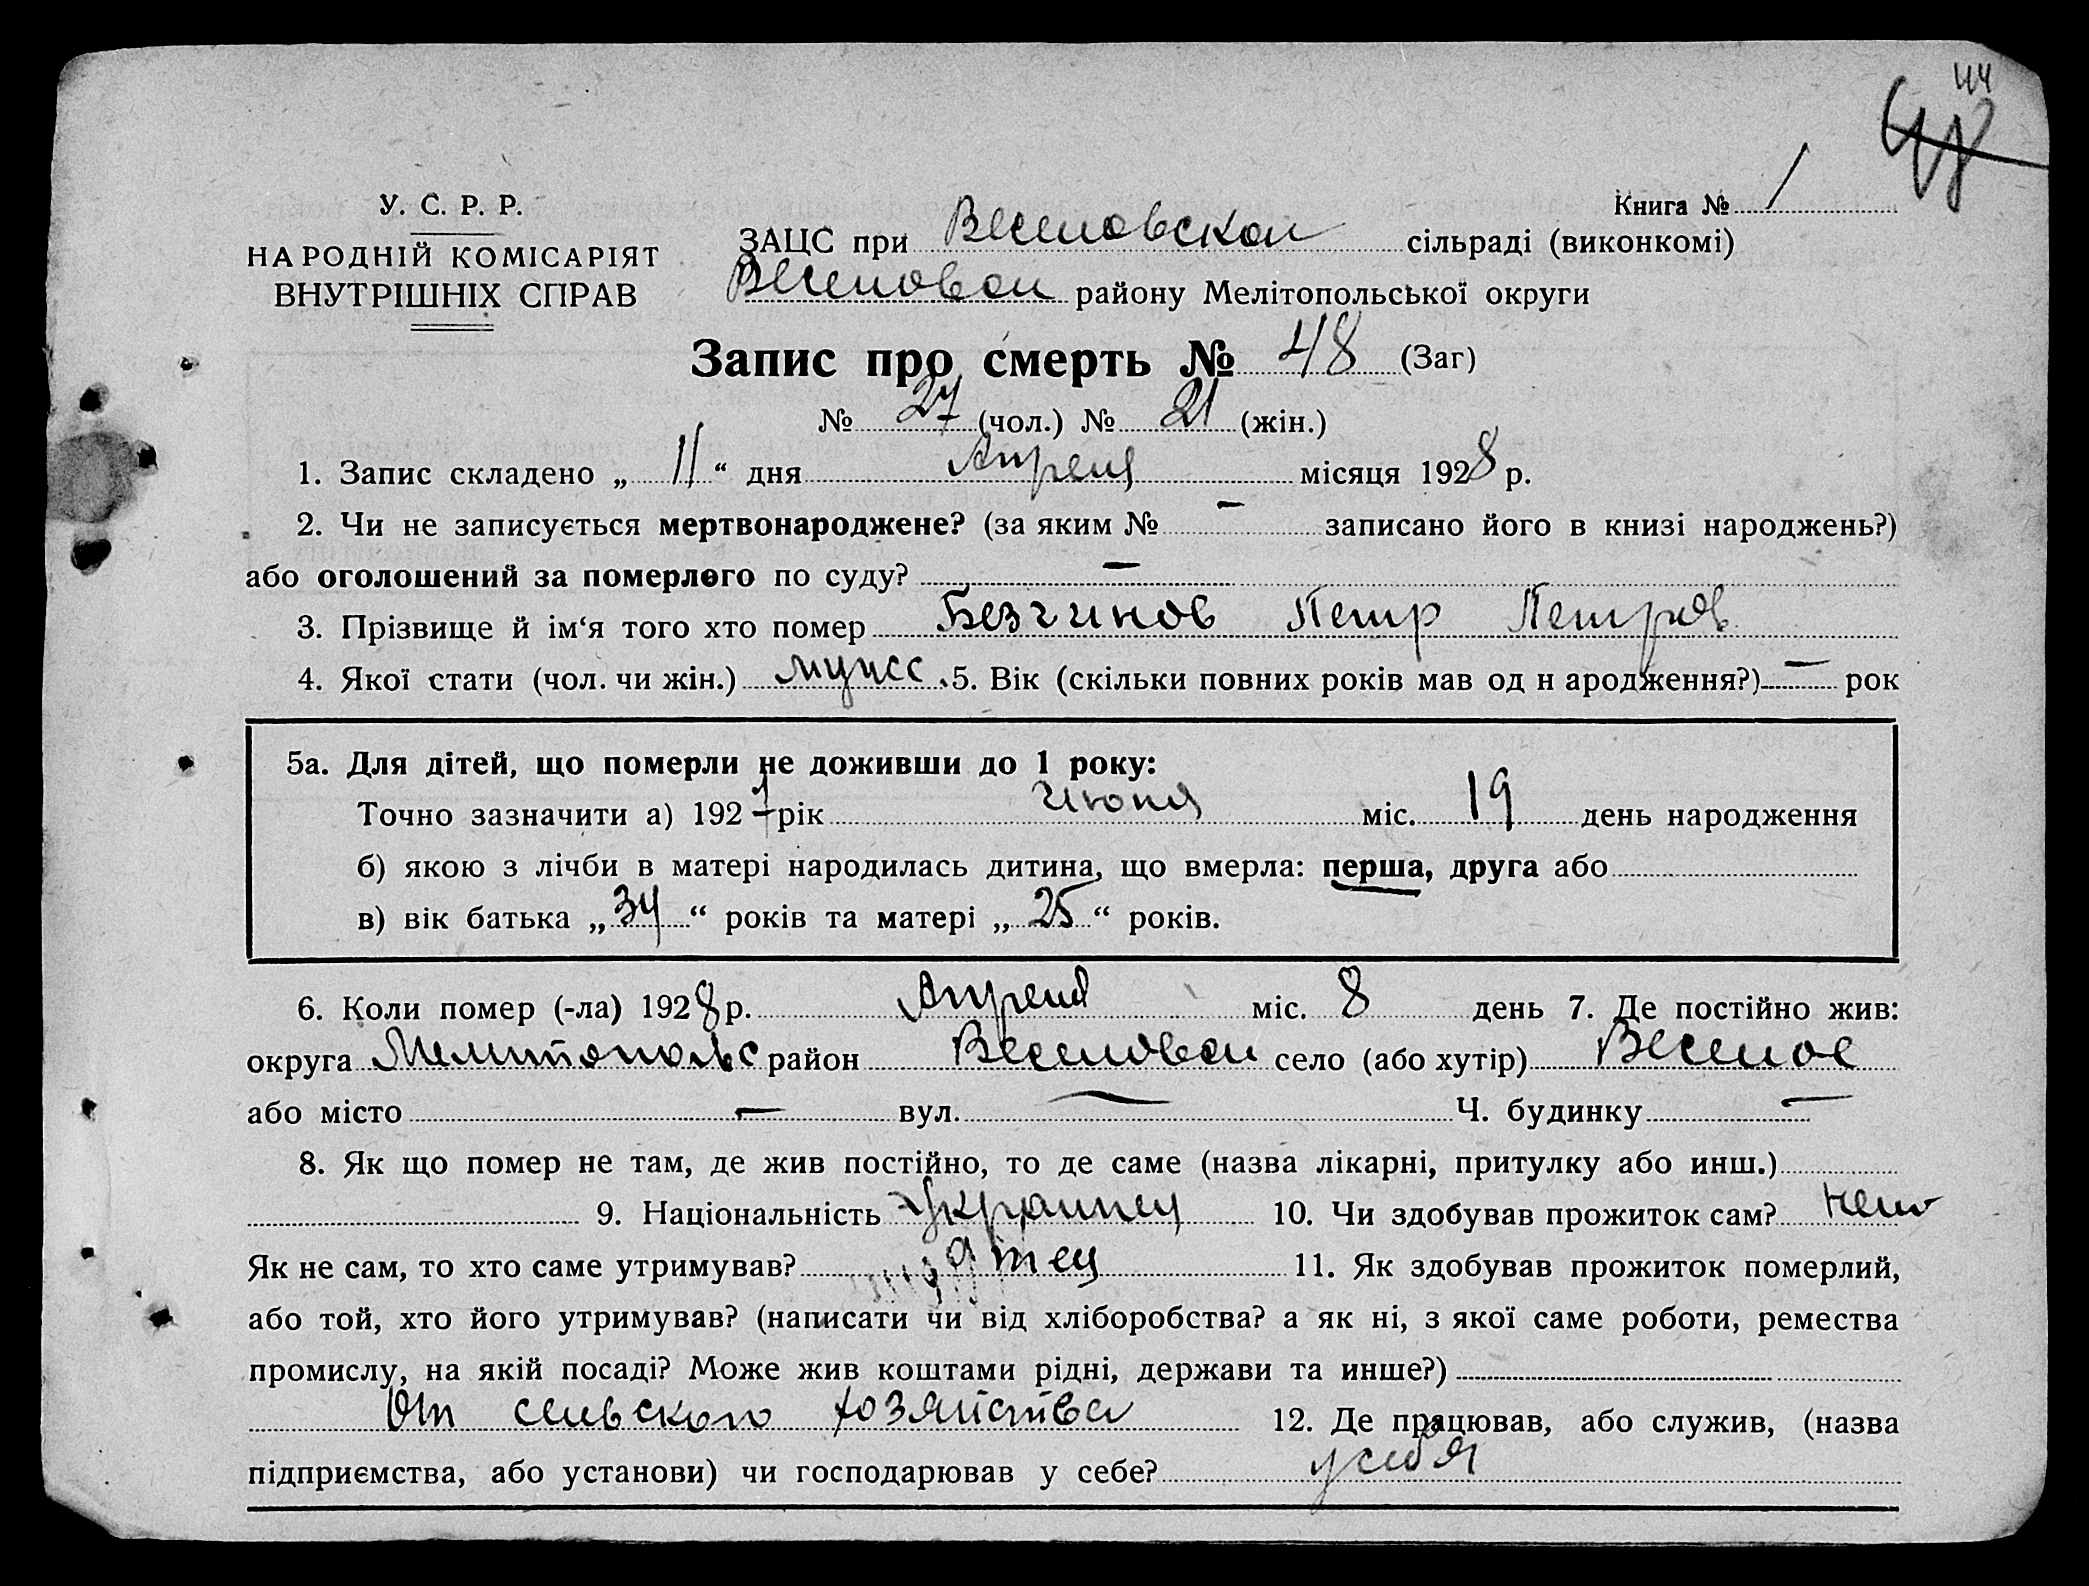 44
48
У. С. Р. Р.
НАРОДНІЙ КОМІСАРІЯТ
ВНУТРІШНІХ СПРАВ
Книга № 1
ЗАЦС при Веселовской сільраді (виконкомі)
Веселовской району Мелітопольської округи
Запис про смерть № 48 (Заг)
№ 27 (чол.) № 21 (жін.)
1. Запис складено „ 11 “ дня Апреля місяця 1928 р.
2. Чи не записується мертвонароджене? (за яким № — записано його в книзі народжень?)
або оголошений за померлого по суду? —
3. Прізвище й ім‘я того хто помер Безгинов Петр Петров
4. Якої стати (чол. чи жін.) мужс. 5. Вік (скільки повних років мав од н ародження?) — рок
5а. Для дітей, що померли не доживши до 1 року:
Точно зазначити а) 192 рік Июня міс. 19 день народження
б) якою з лічби в матері народилась дитина, що вмерла: перша, друга або
в) вік батька „ 34 “ років та матері „ 25 “ років.
6. Коли помер (-ла) 1928 р. Апреля міс. 8 день 7. Де постійно жив:
округа Мелитопольс район Веселовск село (або хутір) Веселое
або місто — вул. — Ч. будинку —
8. Як що помер не там, де жив постійно, то де саме (назва лікарні, притулку або инш.)
9. Національність Украинец 10. Чи здобував прожиток сам? нет
Як не сам, то хто саме утримував? отец 11. Як здобував прожиток померлий,
або той, хто його утримував? (написати чи від хліборобства? а як ні, з якої саме роботи, ремества
промислу, на якій посаді? Може жив коштами рідні, держави та инше?)
От сельского хозяйства 12. Де працював, або служив, (назва
підприємства, або установи) чи господарював у себе? у себя